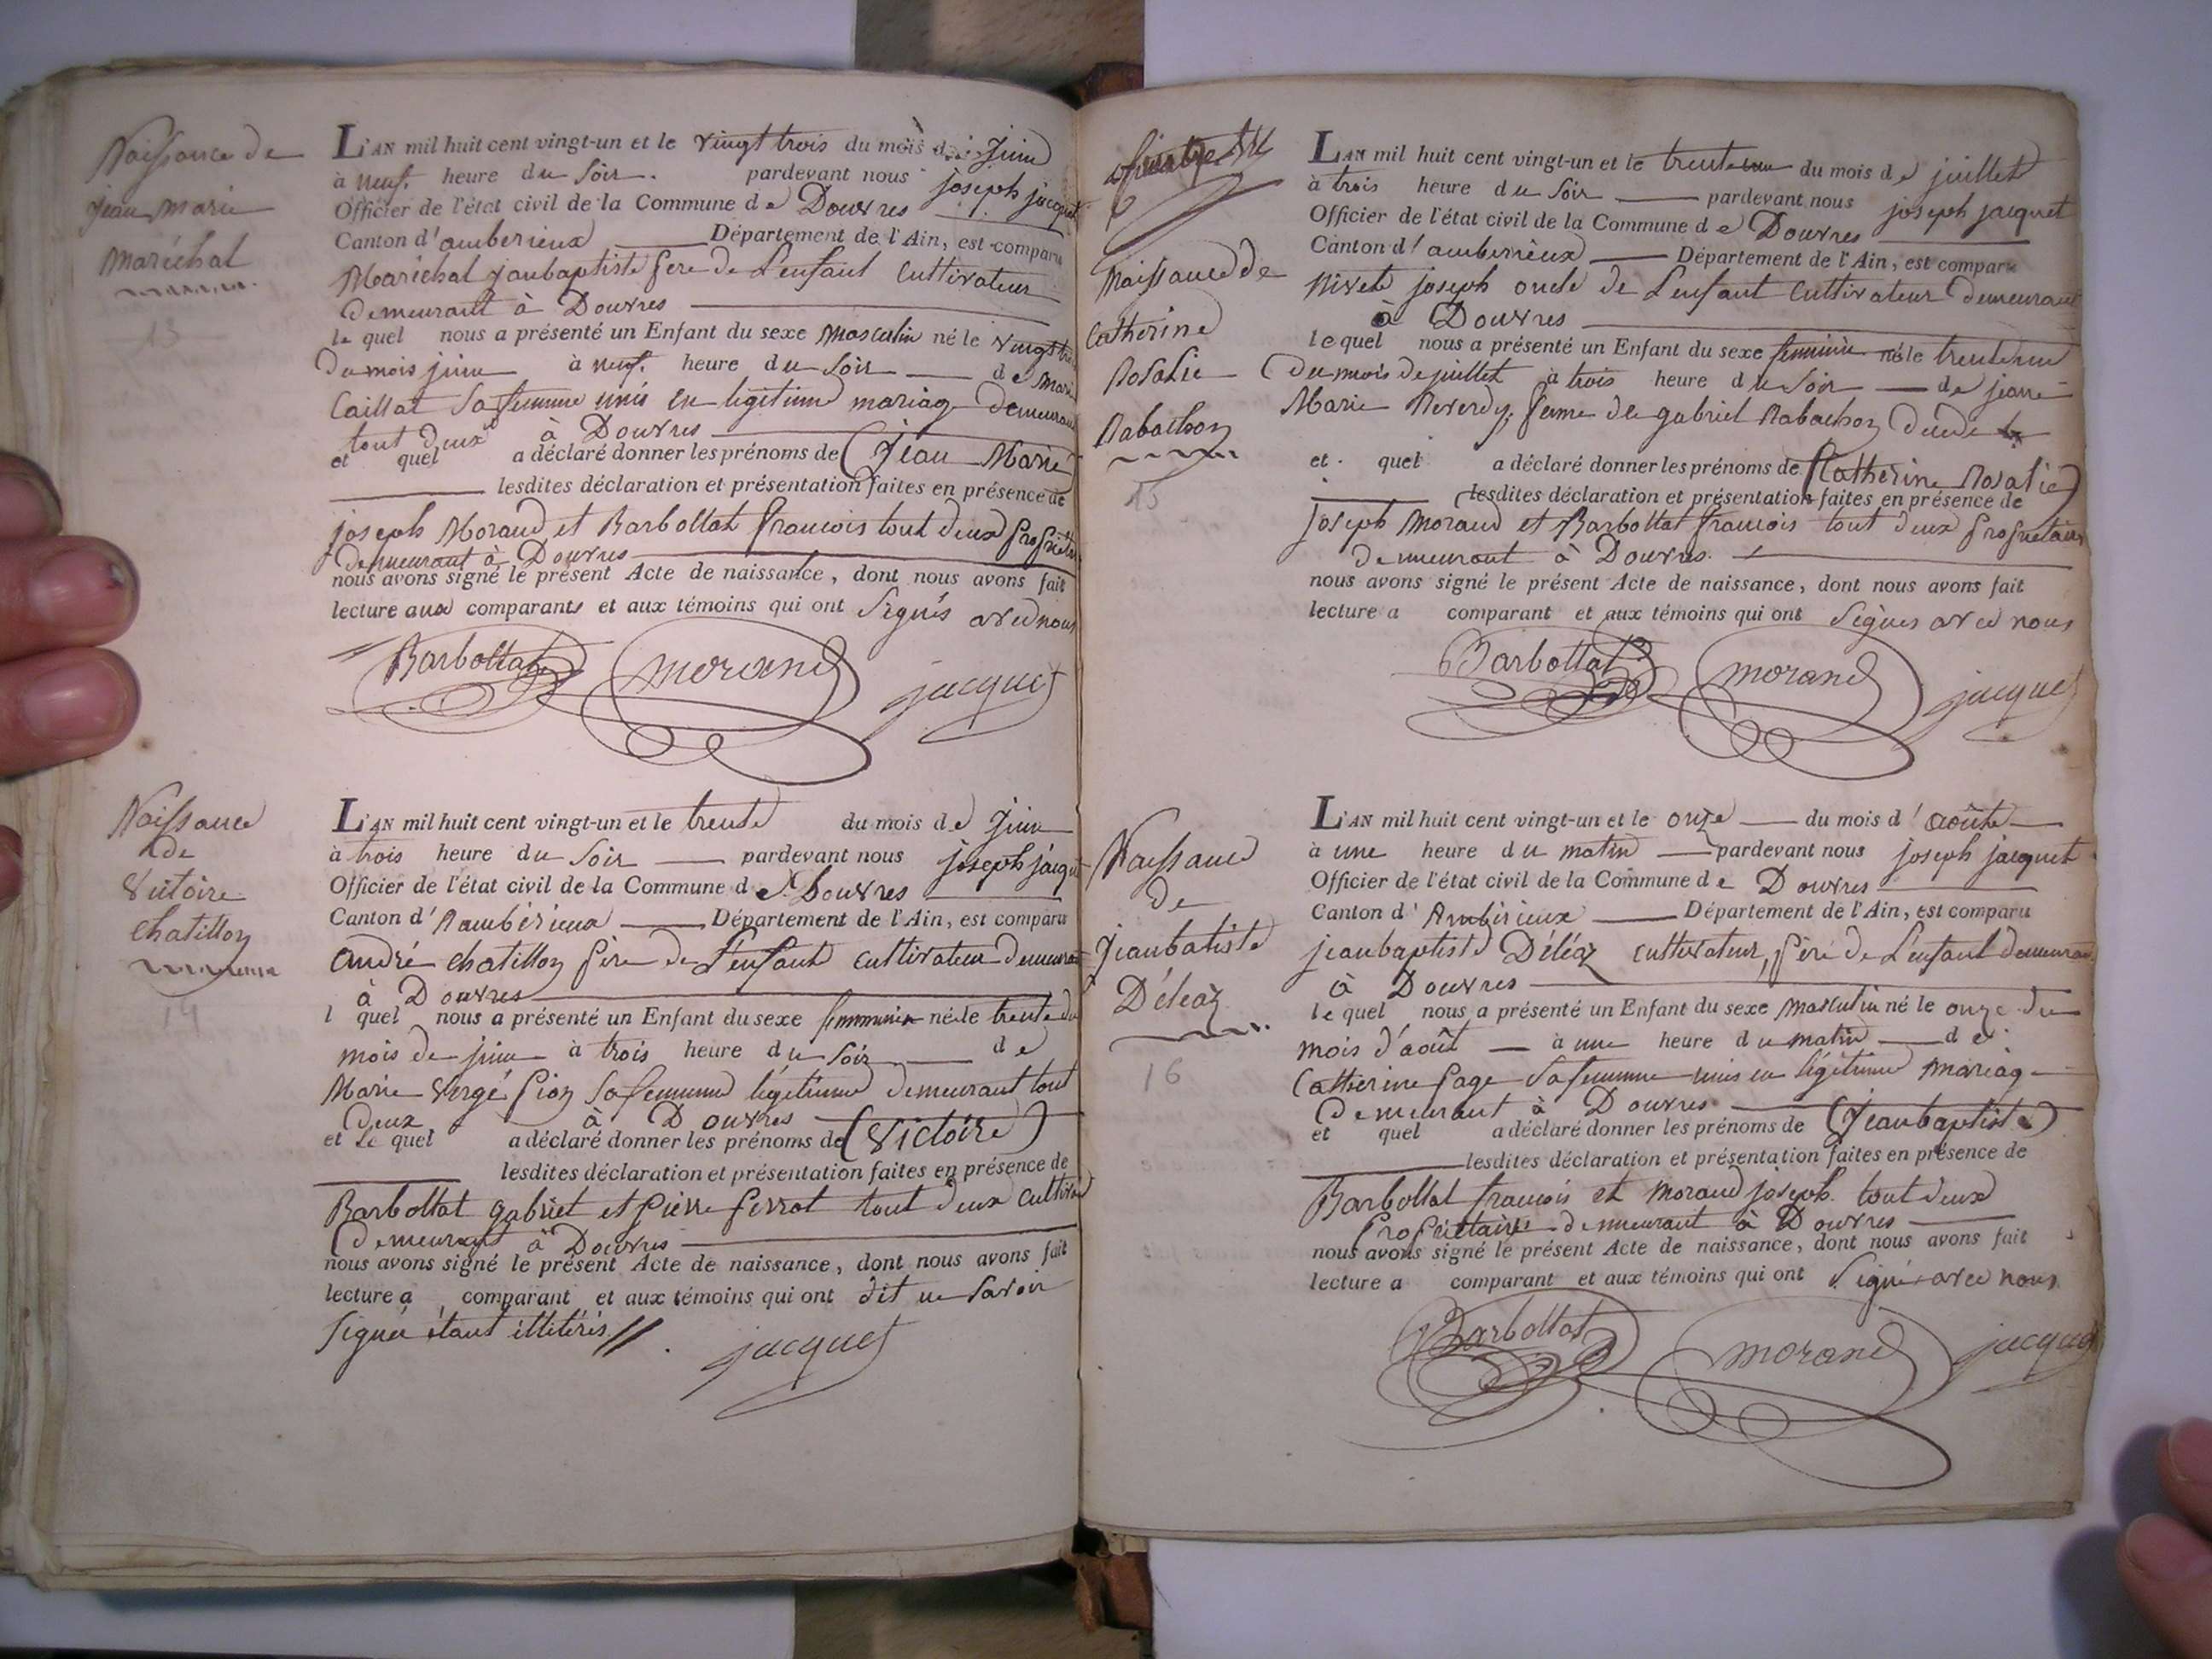 Naissance de
jean marie
maréchal
13
L'AN mil huit cent vingt-un et le vingt trois du mois de juin
à neuf heure du soir. pardevant nous joseph jacquet
Officier de l'état civil de la Commune de Douvres
Canton d'ambérieux Département de l'Ain, est comparu
Maréchal jeanbaptiste pere de l'enfant cultivateur
demeurant à Douvres
le quel nous a présenté un Enfant du sexe masculin né le vingt trois
du mois juin à neuf heure du soir de marie
Caillat sa femme unis en légitime mariage demeurant
tout deux à Douvres
et quel a déclaré donner les prénoms de (jean Marie)
lesdites déclaration et présentation faites en présence de
joseph Morand et Barbollat francois tout deux propriétaires
demeurant à Douvres
nous avons signé le présent Acte de naissance, dont nous avons fait
lecture aux comparants et aux témoins qui ont signés avec nous
Barbollat morand jacquet
Naissance
de
Victoire
chatillon
14
L'AN mil huit cent vingt-un et le trente du mois de juin
à trois heure du soir pardevant nous joseph jacquet
Officier de l'état civil de la Commune de Douvres
Canton d'Ambérieux Département de l'Ain, est comparu
andré chatillon père de l'enfant cultivateur demeurant
à Douvres
l quel nous a présenté un Enfant du sexe feminin né le trente du
mois de juin à trois heure du soir de
Marie Vergé pion sa femme légitime demeurant tout
deux à Douvres
et le quel a déclaré donner les prénoms de (Victoire)
lesdites déclaration et présentation faites en présence de
Barbollat gabriel et pierre perrot tout deux cultivat
demeurant à Douvres
nous avons signé le présent Acte de naissance, dont nous avons fait
lecture a comparant et aux témoins qui ont dit ne savoir
signer étant illitérés //.
jacquet
Naissance de
Catherine
Rosalie
Rabachon
15
L'AN mil huit cent vingt-un et le trente un du mois de juillet
à trois heure du soir pardevant nous joseph jacquet
Officier de l'état civil de la Commune de Douvres
Canton d'ambérieux Département de l'Ain, est comparu
joseph oncle de l'enfant cultivateur demeurant
à Douvres
le quel nous a présenté un Enfant du sexe feminin né le trente un
du mois de juillet à trois heure du soir de jeanne
Marie Reverdy, feme de gabriel Rabachon
et quel a déclaré donner les prénoms de (Catherine Rosalie)
lesdites déclaration et présentation faites en présence de
joseph morand et Barbollat francois tout deux propriétaires
demeurant à Douvres.
nous avons signé le présent Acte de naissance, dont nous avons fait
lecture a comparant et aux témoins qui ont signés avec nous
Barbollat morand jacquet
Naissance
de
jeanbatiste
Déléaz
16
L'AN mil huit cent vingt-un et le onze du mois d'août
à une heure du matin pardevant nous joseph jacquet
Officier de l'état civil de la Commune de Douvres
Canton d'Ambérieux Département de l'Ain, est comparu
jeanbaptiste Déléaz cultivateur, père de l'enfant demeurant
à Douvres
le quel nous a présenté un Enfant du sexe masculin né le onze du
mois d'août à une heure du matin de
Catherine page sa femme unis en légitime mariage
demeurant à Douvres
et quel a déclaré donner les prénoms de (jeanbaptiste)
lesdites déclaration et présentation faites en présence de
Barbollat francois et morand joseph tout deux
propriétaires demeurant à Douvres
nous avons signé le présent Acte de naissance, dont nous avons fait
lecture a comparant et aux témoins qui ont signé avec nous
Barbollat morand jacquet